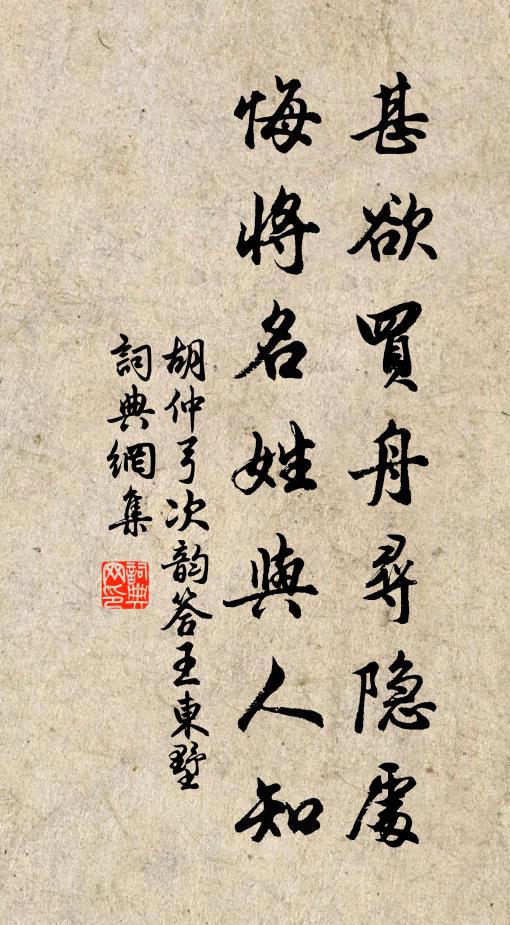 甚欲買舟尋隐處
悔將名姓與人知
胡仲弓次韵答王東墅
詞典網集
詞典網印